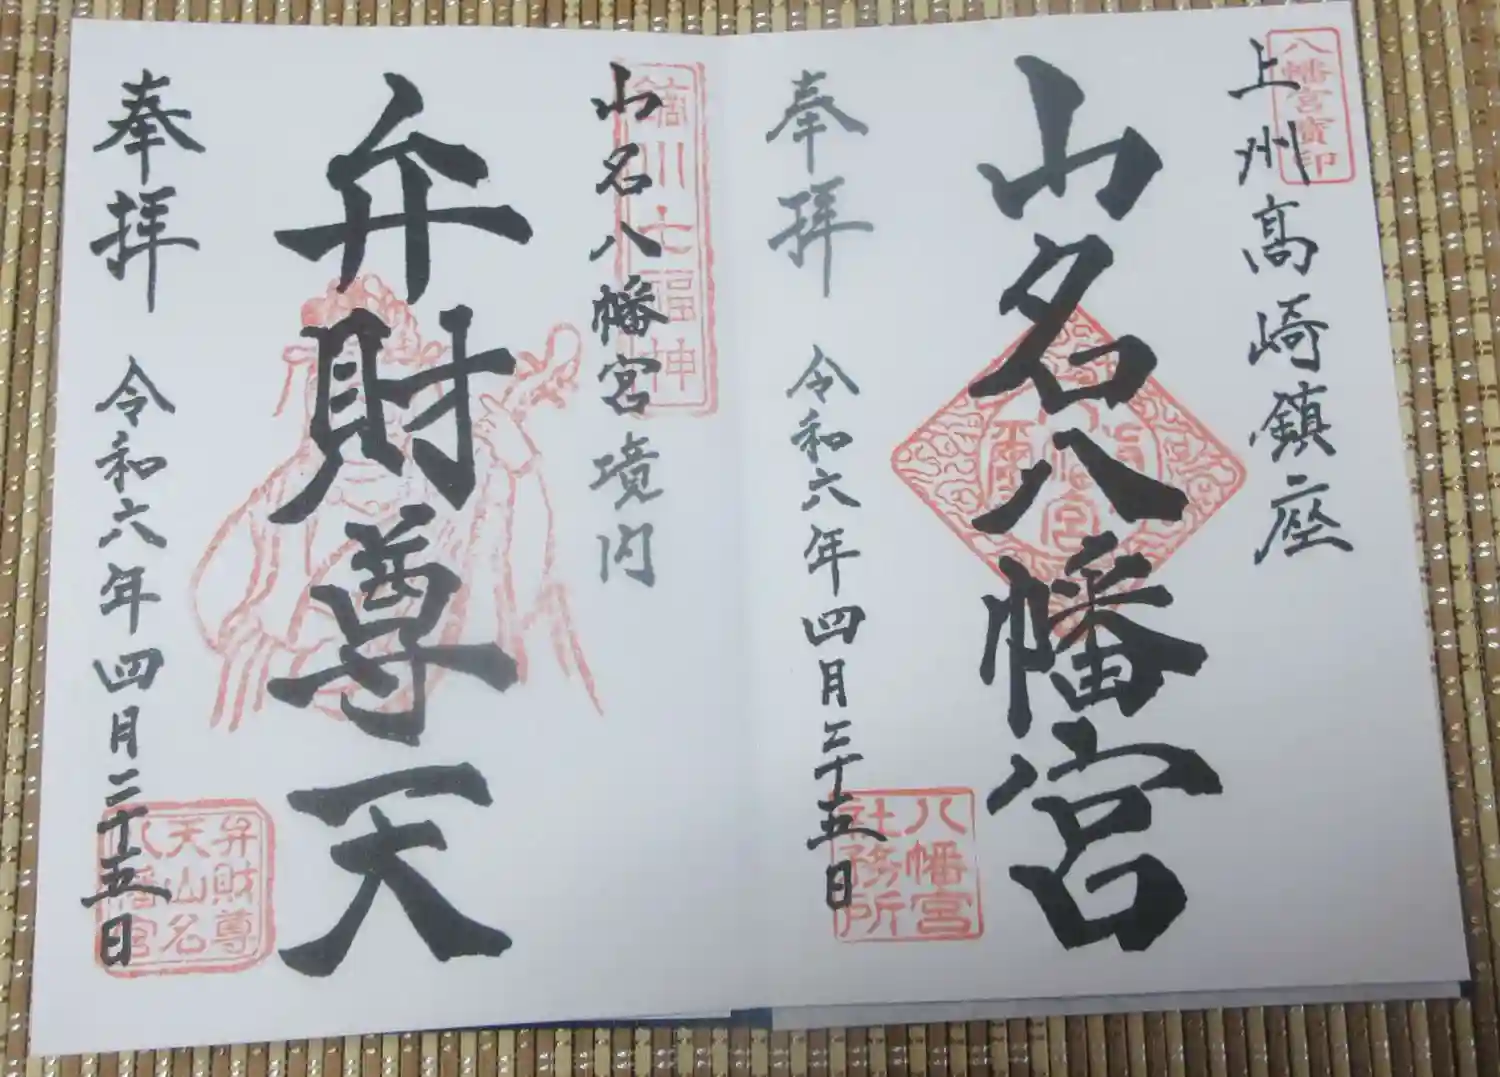 八幡宮寳印
上州高崎鎮座
山名八幡宮
奉拝
令和六年四月二十五日
八幡宮
社務所
鏑川七福神
山名八幡宮境内
弁財尊天
奉拝
令和六年四月二十五日
弁財尊
天山名
八幡宮